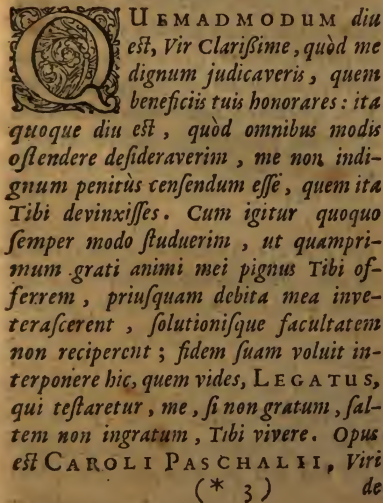 QUEMADMODUM diu
est, Vir Clarißime, quòd me
dignum judicaveris, quem
beneficiis tuis honorares: ita
quoque diu est, quòd omnibus modis
ostendere desideraverim, me non indi-
gnum penitùs censendum esse, quem ita
Tibi devinxisses. Cum igitur quoquo
semper modo studuerim, ut quampri-
mum grati animi mei pignus Tibi of-
ferrem, priusquam debita mea inve-
terascerent, solutionisque facultatem
non reciperent; fidem suam voluit in-
terponere hic, quem vides, LEGATUS,
qui testaretur, me, si non gratum, sal-
tem non ingratum, Tibi vivere. Opus
est CAROLI PASCHALII, Viri
(* 3) de